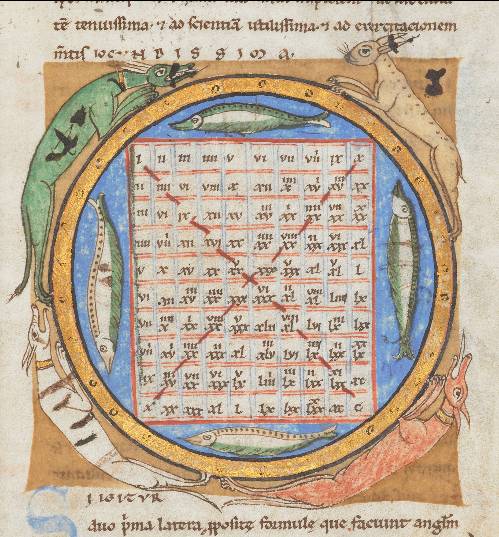 tē tenuissima· ⁊ ad scientiā utilissima· ⁊ ad exercitacionem
m̄tis iocNDISSIMA·
i ii iii iiii v vi vii viii ix x
ii iiii vi viii x xii xiiii xvi xviii xx
iii vi ix xii xv xviii xxi xxiiii xxvii xxx
iiii viii xii xvi xx xxiiii xxviii xxxii xxxvi xl
v x xv xx xxv xxx xxxv xl xlv l
vi xii xviii xxiiii xxx xxxvi xlii xlviii liiii lx
vii xiiii xxi xxviii xxxv xlii xlix lvi lxiii lxx
viii xvi xxiiii xxxii xl xlviii lvi lxiiii lxxii lxxx
ix xviii xxvii xxxvi xlv liiii lxiii lxxii lxxxi xc
x xx xxx xl l lx lxx lxxx xc c
SIIGITVR
duo p̄ma latera ꝓposite formule que faciunt angl̄m